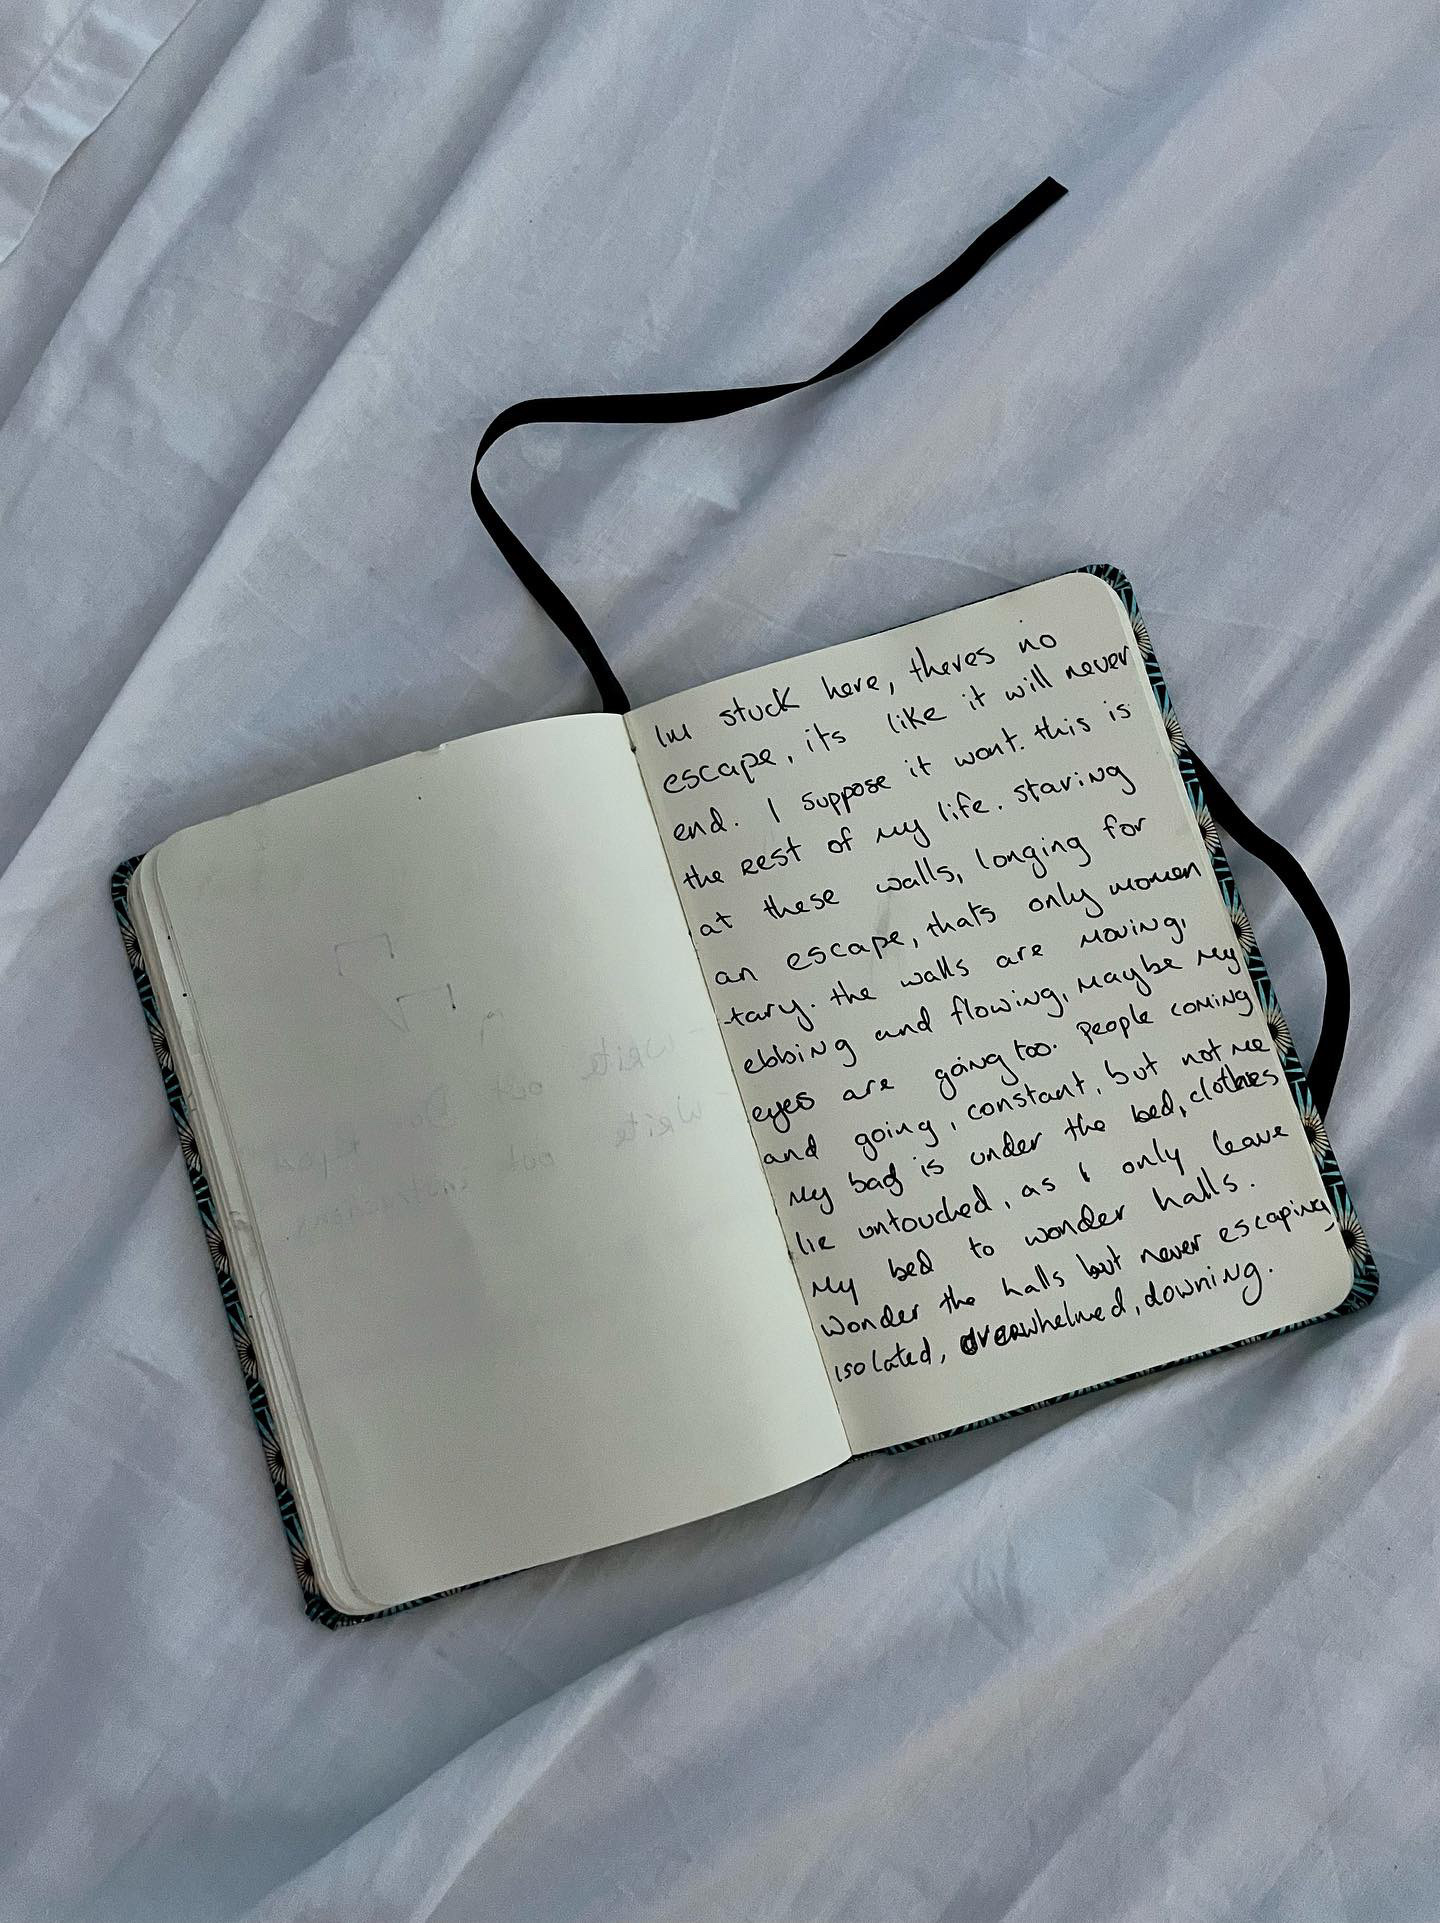 Im stuck here, theres no
escape, its like it will never
end. I suppose it wont. this is
the rest of my life. staring
at these walls, longing for
an escape, thats only momen
-tary. the walls are moving,
ebbing and flowing, maybe my
eyes are going too. people coming
and going, constant, but not me
My bag is under the bed, clothes
lie untouched, as I only leave
My bed to wonder halls.
Wonder the halls but never escaping
isolated, overwhelmed, downing.
write
out
Do
write
out